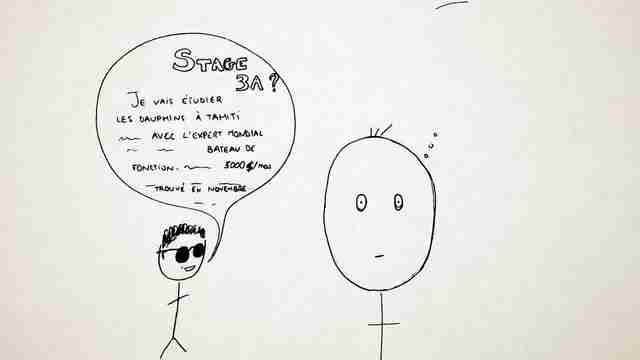 STAGE
3A ?
JE VAIS ÉTUDIER
LES DAUPHINS À TAHITI
AVEC L'EXPERT MONDIAL
BATEAU DE
FONCTION. 5000 $/MOIS
TROUVÉ EN NOVEMBRE